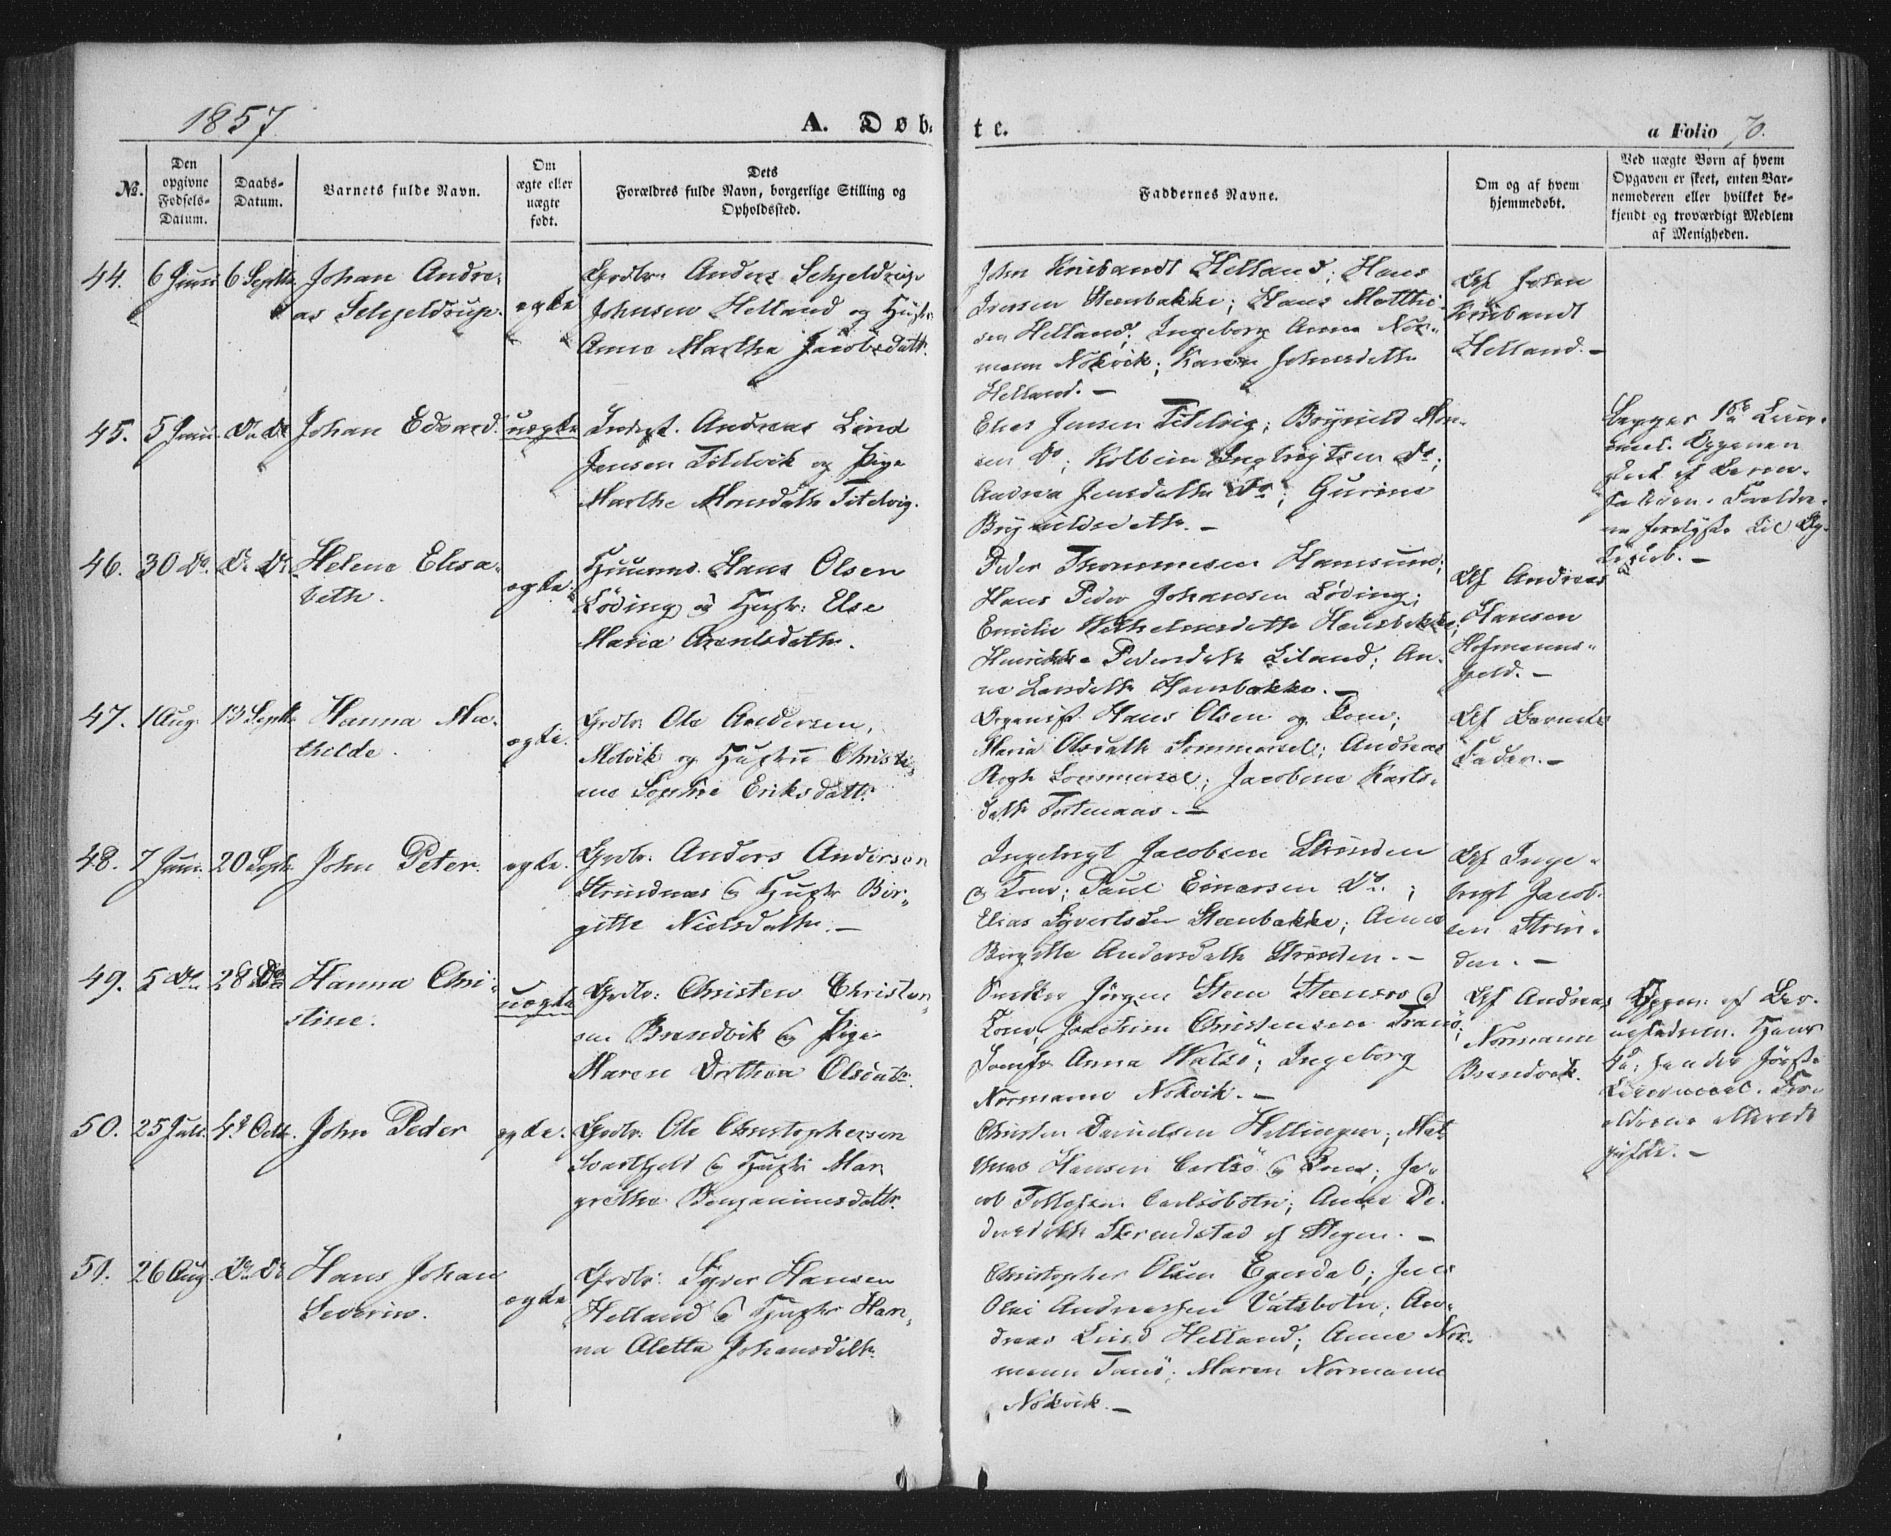 1857
A. Døb-
te.
a Folio 70.
No.
Den opgivne Fødsels-Datum.
Daabs-Datum.
Barnets fulde Navn.
Om ægte eller uægte født.
Dets Forældres fulde Navn, borgerlige Stilling og Opholdssted.
Faddernes Navne.
Om og af hvem hjemmedøbt.
Ved uægte Børn af hvem Opgaven er skeet, enten Barnemoderen eller hvilket bekjendt og troværdigt Medlem af Menigheden.
44. 6 Juni 6 Septbr Johan Andre-
as Schjeldrup.
egte
Grdbr: Anders Schjeldrup
Johnsen Helland og Hustr:
Anne Martha Jacobsdatt:
John Helland; Hans
Jensen Steenbakke; Hans Matthi-
sen Helland; Ingeborg Anna Nor-
mann Nokvik; Karen Johnsdattr
Helland. —
Af John
Helland. —
45. 5 Juni Do Do Johan Edvard. uegte
Andreas Lind
Jensen Titelvik og Pige
Marthe Monsdattr Titelvig.
Elias Jensen Titelvig; Brynild Mon-
sen Do; Kolbein Ingebrigtsen Do;
Andrea Jensdattr Do; Gurine
Brynildsdattr. —
Begges 1ste Leier-
maal. Opgaven
skeet af Barne-
faderen. Forældre-
ne
46. 30 Do. Do Do Helena Elisa-
beth.
egte.
Huusmd. Hans Olsen
Løding og Hustr: Else
Maria Arentsdattr.
Peder Thommesen Hamsund;
Hans Peder Johansen Løding;
Emilie
Pedersdattr Liland; An-
ne Larsdattr Hansbakke. —
Af Andreas
Hansen
Hofmanns-
47. 1 Aug. 13 Septbr Hanna Ma-
thilde.
egte.
Grdbr: Ole Andersen,
Molvik og Hustru Christi-
ne Sophie Eriksdattr
Organist Hans Olsen og Kone;
Maria Olsdattr Sommersel; Andreas
Sommersel; Jacobine Karls-
dattr
Af Barnets
Fader. —
48. 7 Juni. 20 Septbr John Peter. egte.
Grdbr: Anders Andersen
Strindnæs og Hustr Bir-
gitte Nielsdattr. —
Ingebrigt Jacobsen Strinden
og Kone; Paul Einarsen Do.;
Elias Syvertsen Steenbakke; Anne
Birgitte Andersdattr Strinden. —
Af Inge-
brigt Jacob-
sen Strin-
den. —
49. 5 Do 28 Do Hanna Chri-
stine.
uegte
Grdbr: Christen Christen-
sen Brandvik og Pige
Maren Dorthea Olsdattr
Jørgen Steen og
Kone, Joachim Christensen Tranø;
Jomfr Anna Walsø; Ingeborg
Normann Nokvik. —
Af Andreas
Normann
Brandvik.
Opgav. af Bar-
nefaderen. Hans
4de, hendes første
Leiermaal. For-
ældrene allerede
gifte. —
50. 25 Juli. 4de Octbr. John Peder egte.
Grdbr: Ole Christophersen
Svartfjeld og Hustr Mar-
grethe Benjaminsdattr.
Christen Danielsen Hellingen; Mat-
thias Hansen Carlsø og Kone; Ja-
cob Tollefsen Carlsøbotn; Anne Pe-
dersdattr af Stegen. —
51. 26 Aug. Do Do Hans Johan
Severin.
egte
Grdbr: Syver Hansen
Helland og Hustr Han-
na Aletta Johansdattr.
Christopher Olsen Egerdal; Jens
Olai Andreassen Vatsbotn; An-
dreas Lind Helland; Anne Nor-
mann Tranø; Maren Normann
Nokvik. —